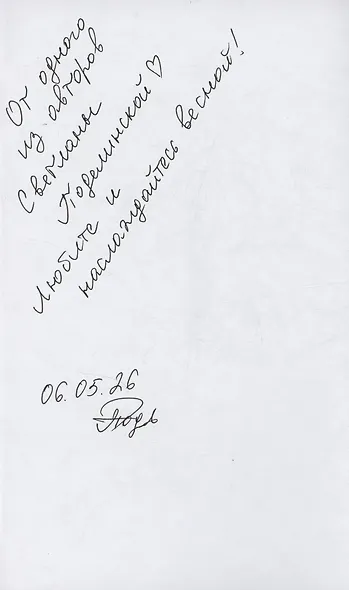 От одного
из авторов
Светланы
Поделинской ♡
Любите и
наслаждайтесь весной!
06.05.26